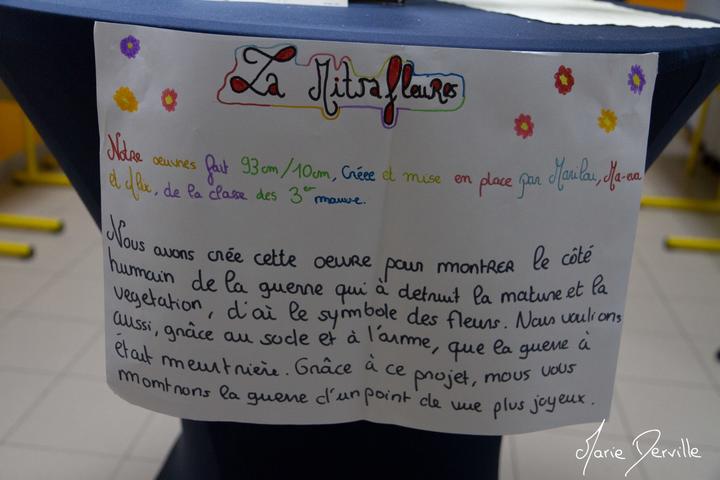 La Mitrafleures
Notre oeuvres fait 93cm/10cm, Créee et mise en place par Marilou, Ma-eva
et Alix, de la classe des 3er mauve.
Nous avons crée cette oeuvre pour montrer le côté
humain de la guerre qui à detruit la nature et la
vegetation, d'où le symbole des fleurs. Nous voulions
aussi, grâce au socle et à l'arme, que la guerre à
était meurtrière. Grâce à ce projet, nous vous
montrons la guerre d'un point de vue plus joyeux.
Marie Derville